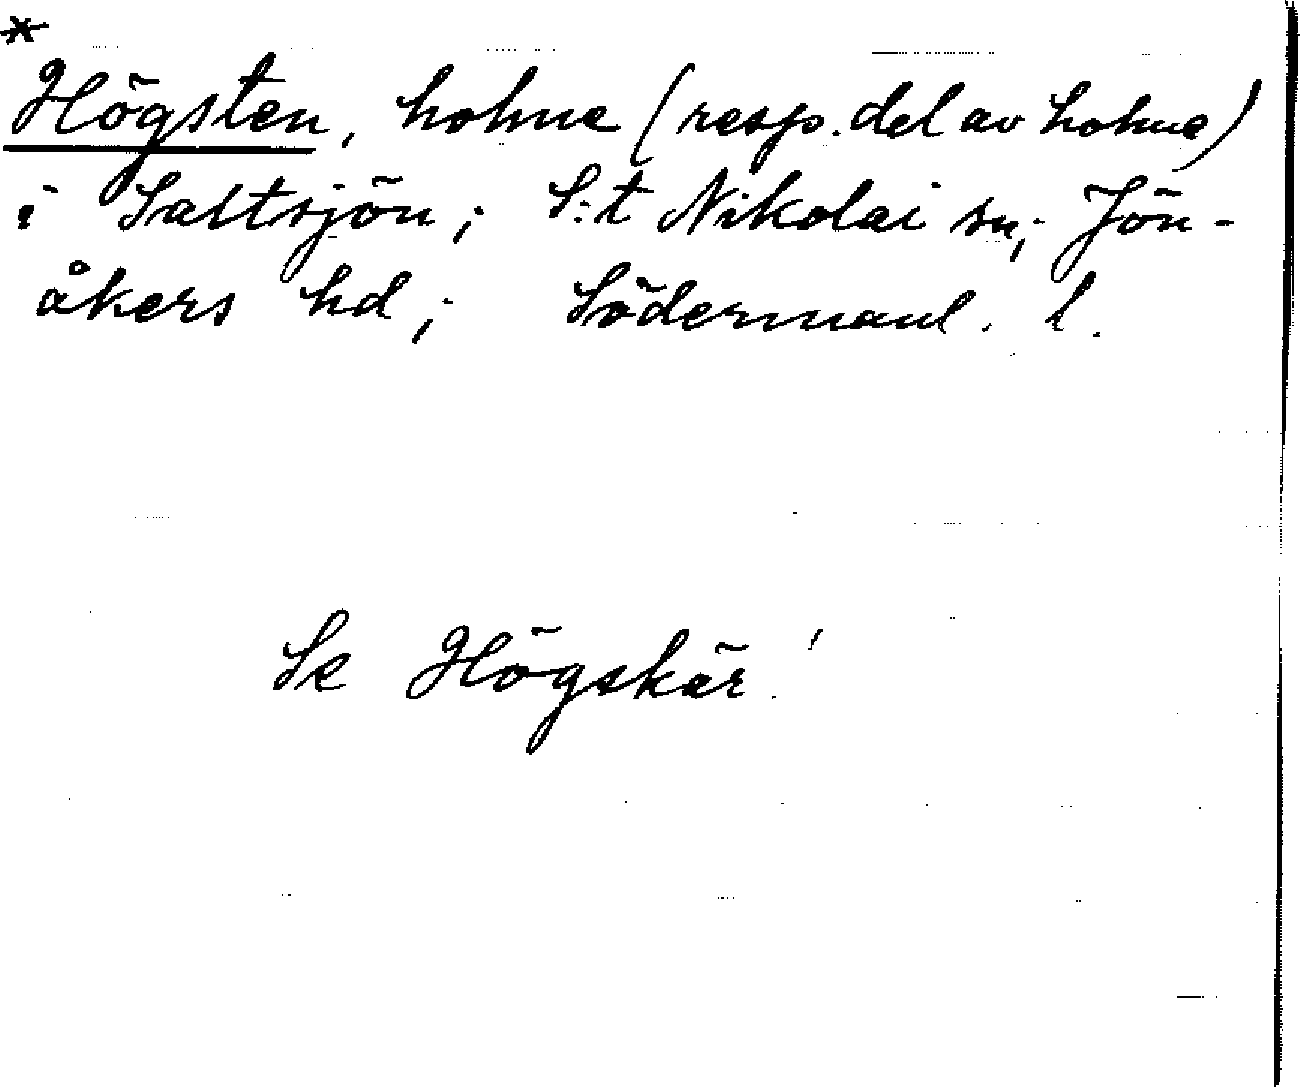 *
Högsten, holme (resp. del av holme)
i Saltsjön; S:t Nikolai sn; Jön-
åkers hd; Södermanl. l.
Se Högskär!